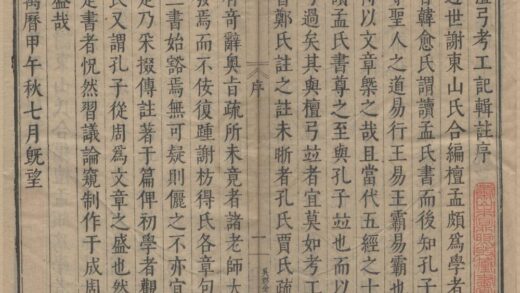 檀弓考工記輯註序
近世謝東山氏合編檀孟頗爲學者
昔韓愈氏謂讀孟氏書而後知孔子
尊聖人之道易行王易王霸易霸也
得以文章槩之哉且當代五經之十
讀孟氏書尊之至與孔子竝也而以
過矣其與檀弓竝者宜莫如考工
書鄭氏註之註未晣者孔氏賈氏疏
序
一
有奇辭奧旨疏所未竟者諸老師大
發焉而不佞復踵謝枋得氏各章句
二書始豁焉無可疑則儷之不亦宜
定乃采掇傳註著于篇俾初學者觀
氏又謂孔子從周爲文章之盛也然
是書者怳然習議論窺制作于成周
盛哉
萬曆甲午秋七月旣望